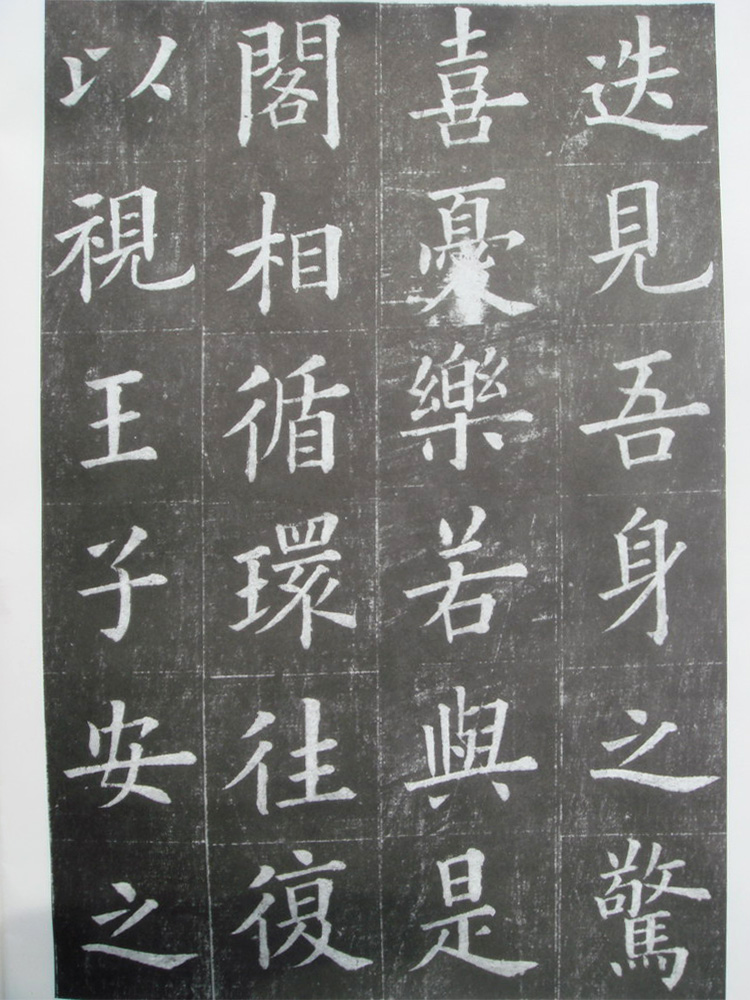 迭見吾身之驚
喜憂樂若與是
閣相循環往復
以視王子安之